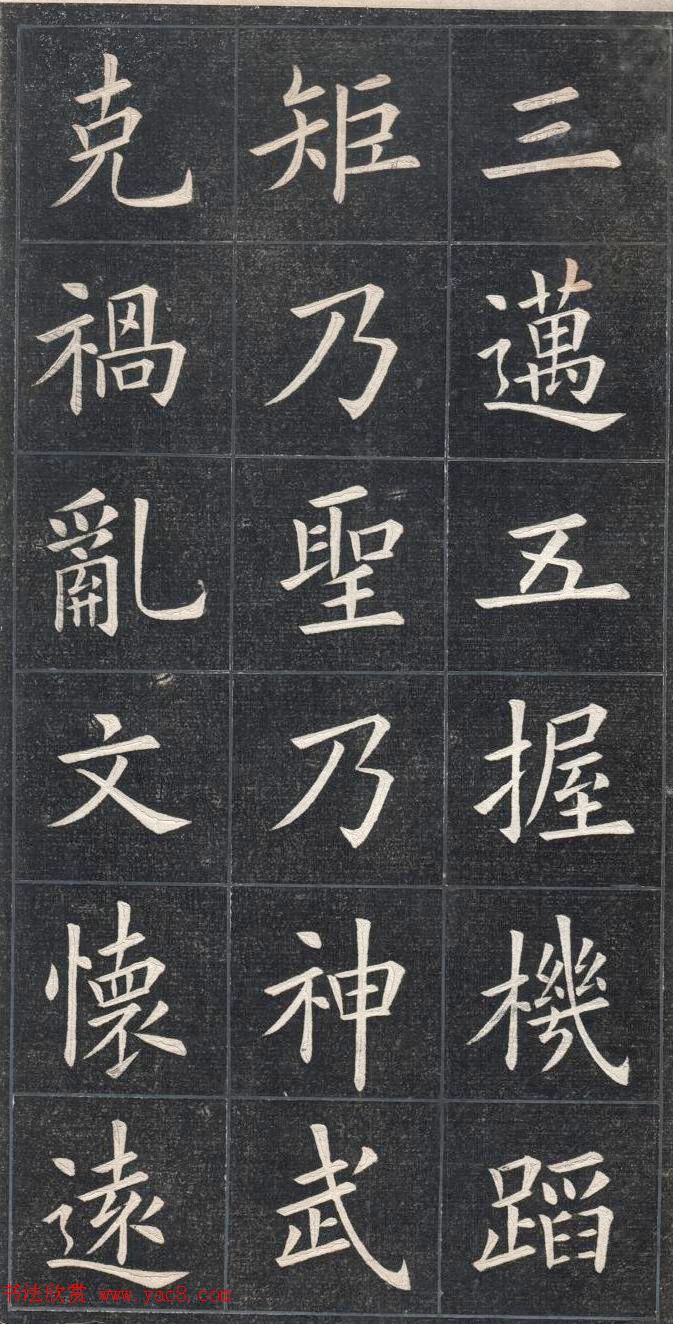 三邁五握機蹈
矩乃聖乃神武
克禍亂文懷遠
书法欣赏 www.yac8.com